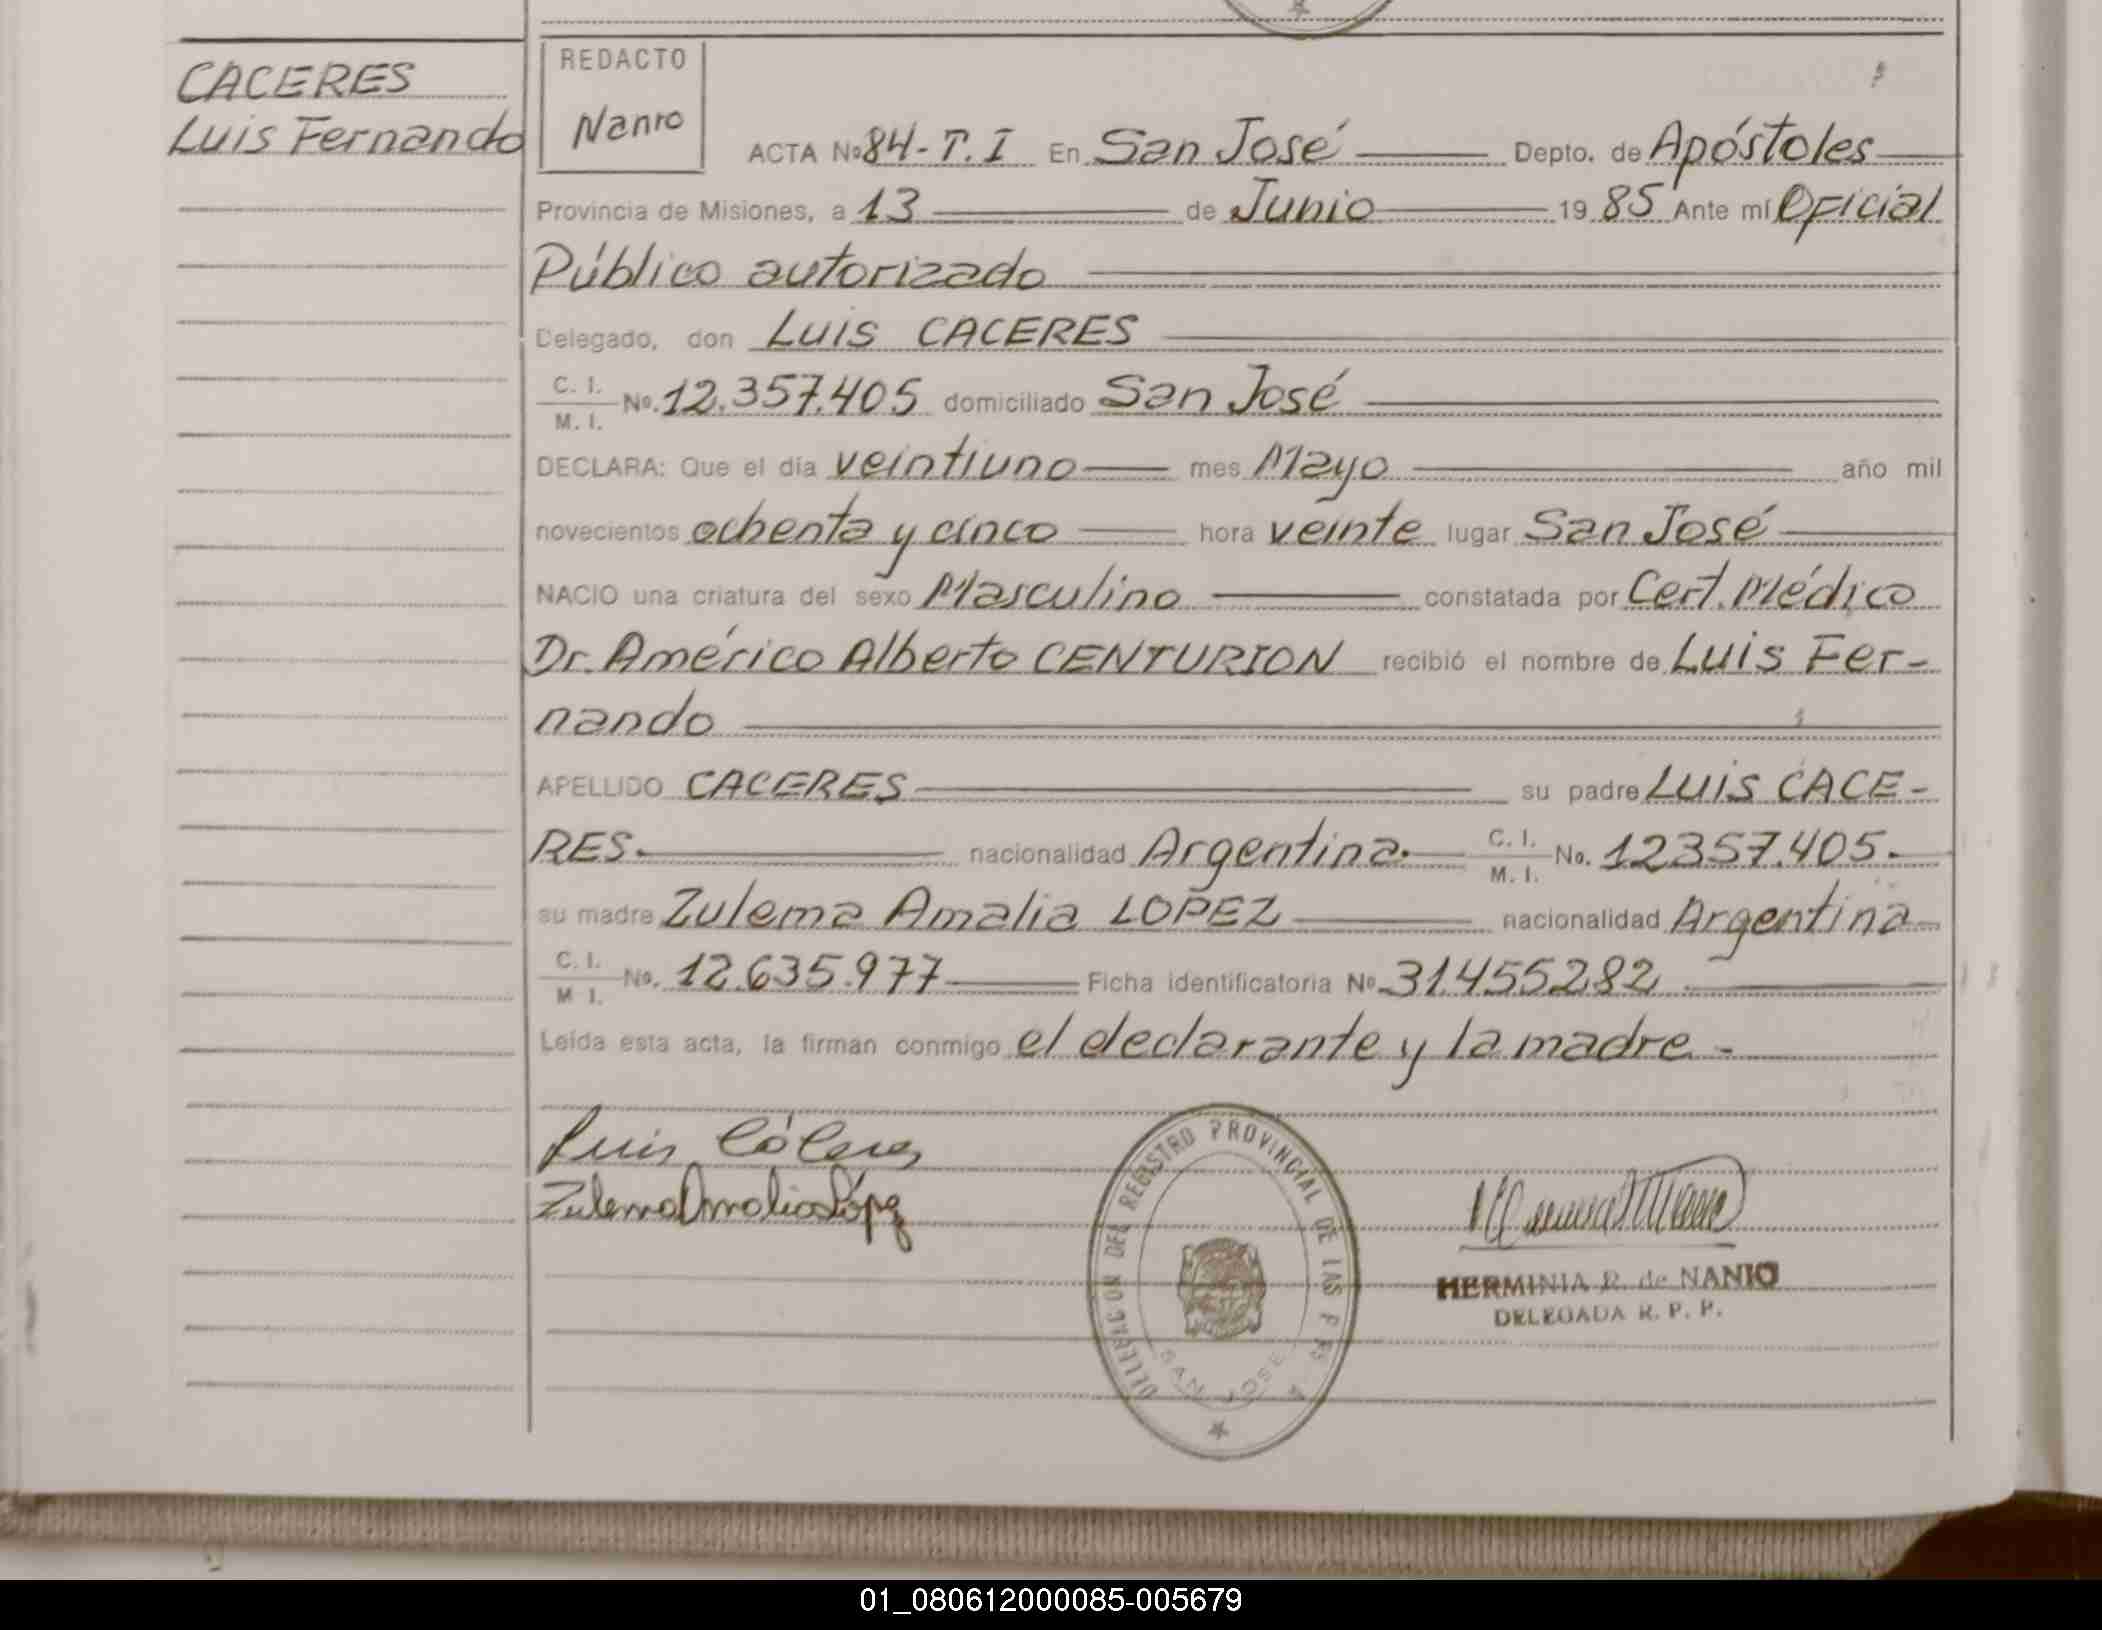 CACERES
Luis Fernando
REDACTO
Nanio
ACTA No 84-T.I En San José Depto. de Apóstoles
Provincia de Misiones, a 13 de Junio 19 85 Ante mí Oficial
Público autorizado
Delegado, don Luis CACERES
C. I.
M. I. No. 12.357.405 domiciliado San José
DECLARA: Que el día veintiuno mes Mayo año mil
novecientos ochenta y cinco hora veinte lugar San José
NACIO una criatura del sexo Masculino constatada por Cert. Médico
Dr. Américo Alberto CENTURION recibió el nombre de Luis Fer-
nando
APELLIDO CACERES su padre Luis CACE-
RES. nacionalidad Argentina. C. I. M. I. No. 12357.405.
su madre Zulema Amalia LOPEZ nacionalidad Argentina
C. I.
M I. No. 12.635.977 Ficha identificatoria No 31455282
Leída esta acta, la firman conmigo el declarante y la madre -
Luis Cáceres
Zulema Amalia López
DELEGACION DEL REGISTRO PROVINCIAL DE LAS P
SAN JOSE
HERMINIA R. de NANIO
DELEGADA R. P. P.
01_080612000085-005679